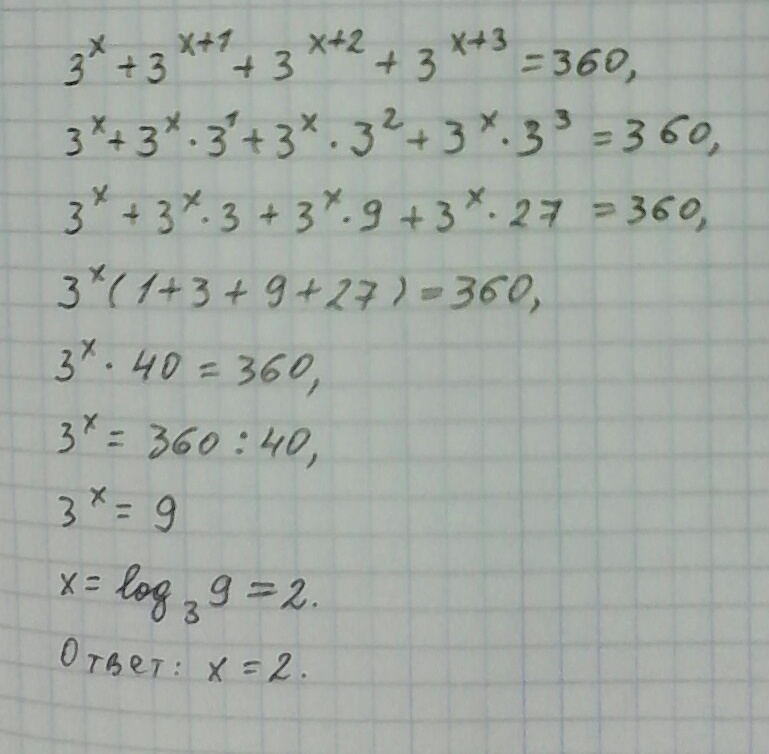 3^x + 3^{x+1} + 3^{x+2} + 3^{x+3} = 360,
3^x + 3^x · 3^1 + 3^x · 3^2 + 3^x · 3^3 = 360,
3^x + 3^x · 3 + 3^x · 9 + 3^x · 27 = 360,
3^x (1 + 3 + 9 + 27) = 360,
3^x · 40 = 360,
3^x = 360 : 40,
3^x = 9
x = log_3 9 = 2.
Ответ: x = 2.